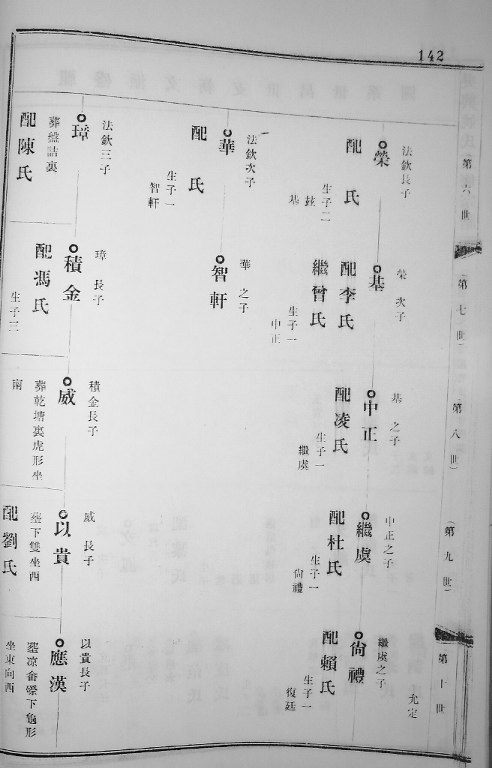 142
第六世
法欽長子
榮
配 氏
生子二
鼓
基
法欽次子
華
配 氏
生子一
智軒
法欽三子
璋
葬盤詰裏
配陳氏
第七世
榮 次子
基
配李氏
繼曾氏
生子一
中正
華 之子
智軒
璋 長子
積金
配馮氏
生子三
第八世
基 之子
中正
配凌氏
生子一
繼虞
積金長子
威
葬乾塘裏虎形坐
南
第九世
中正之子
繼虞
配杜氏
生子一
尙禮
威 長子
以貴
塟下雙坐西
配劉氏
第十世
允定
繼虞之子
尙禮
配賴氏
生子一
復廷
以貴長子
應漢
下龜形
坐東向西